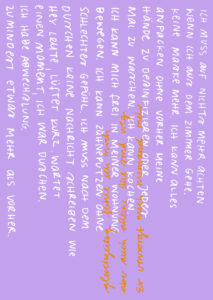 ICH MUSS AUF NICHTS MEHR ACHTEN
WENN ICH AUS DEM ZIMMER GEHE.
KEINE MASKE MEHR. ICH KANN ALLES
ANPACKEN OHNE VORHER MEINE
HÄNDE ZU DESINFIZIEREN ODER JEDES
MAL ZU WASCHEN. ICH KANN KOCHEN.
ICH KANN MICH FREI IN MEINER WOHNUNG
BEWEGEN. ICH KANN ZÄHNEPUTZEN OHNE
SCHLECHTES GEFÜHL. ICH MUSS NACH DEM
DUSCHEN KEINE NACHRICHT SCHREIBEN WIE
HEY LEUTE, LÜFTET KURZ, WARTET
EINEN MOMENT, ICH WAR DUSCHEN.
ICH HABE ABWECHSLUNG.
ZUMINDEST ETWAS MEHR ALS VORHER.